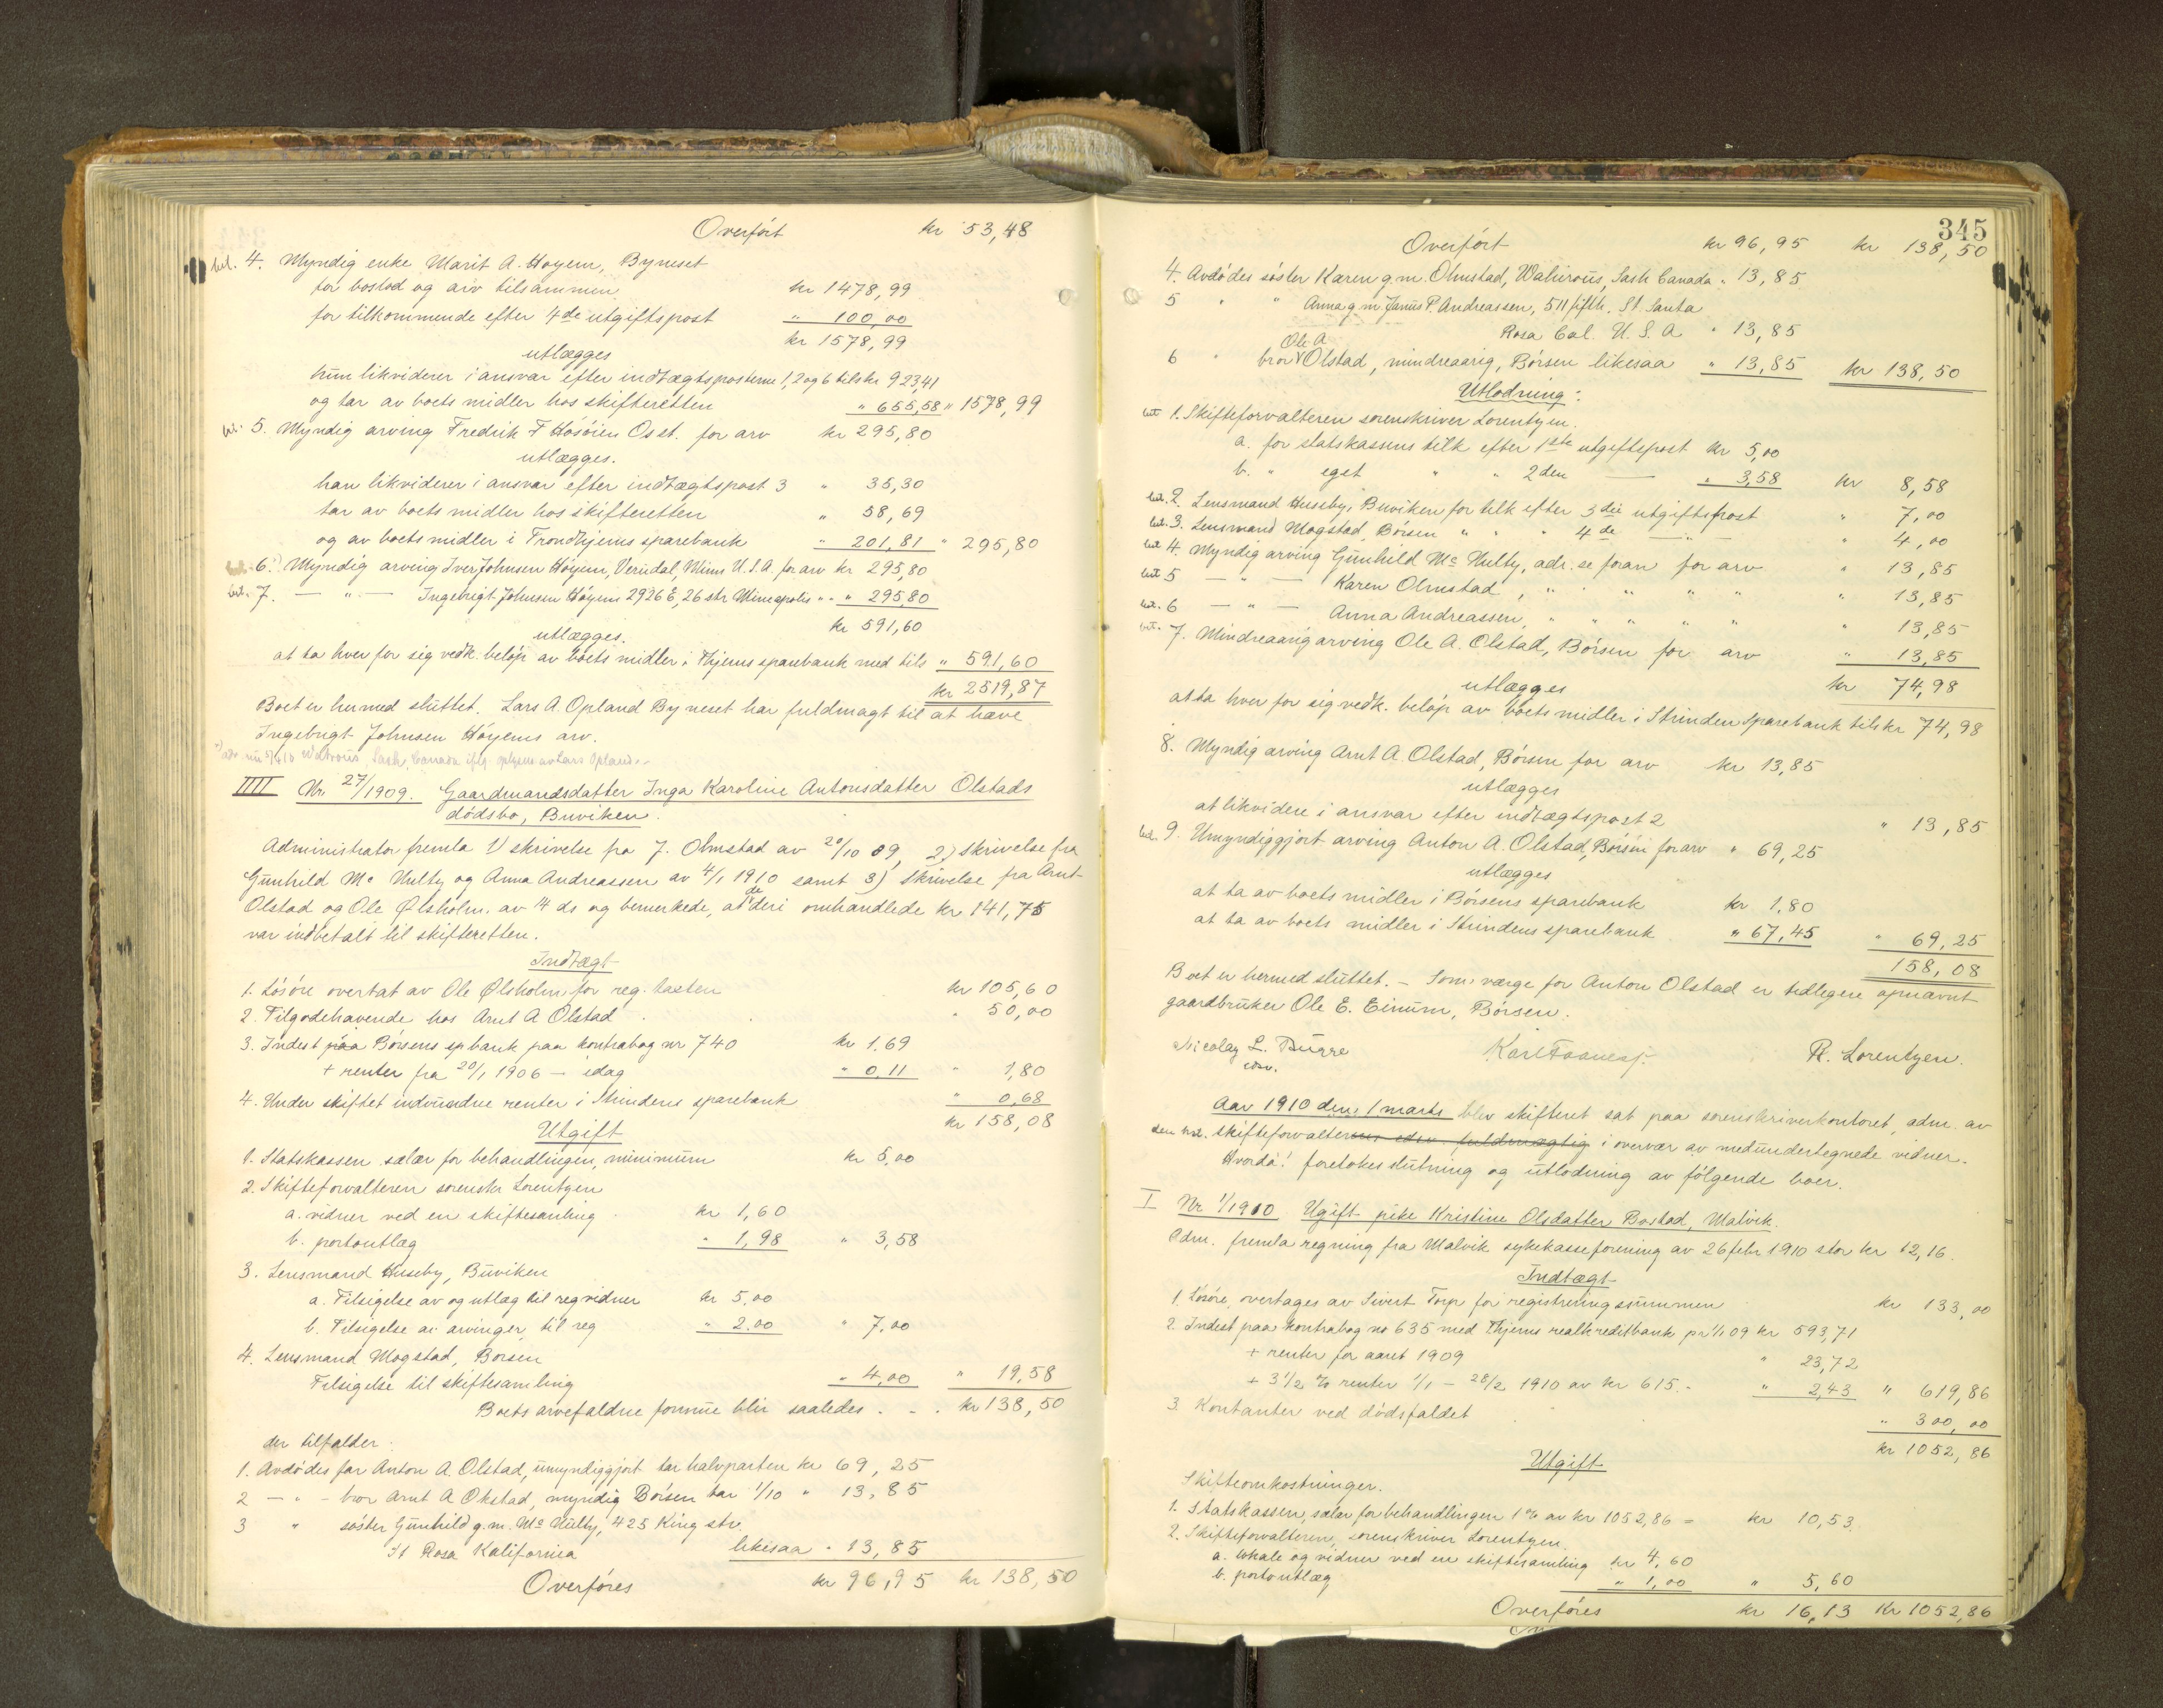 Overført kr 53,48
bet. 4. Myndig enke Marit A. Høyem, Byneset
for boslod og arv tilsammen kr 1478,99
for tilkommende efter 4de utgiftspost " 100,00
kr 1578,99
utlægges
hun likviderer i ansvar efter indtægtsposterne 1, 2 og 6 tils kr 923,41
og tar av boets midler hos skifteretten " 655,58 " 1578,99
bet. 5. Myndig arving Fredrik F Hosöien Osst. for arv kr 295,80
utlægges.
han likviderer i ansvar efter indtægtspost 3 " 35,30
tar av boets midler hos skifteretten " 58,69
og av boets midler i Trondhjems sparebank " 201,81 " 295,80
bet. 6. Myndig arving Iver Johnsen Höyem, Verndal, Minn U.S.A. for arv kr 295,80
bet. 7. — " — Ingebrigt Johnsen Höyem 2926 E, 26 str Mineapolis " " " 295,80
kr 591,60
utlægges.
at ta hver for sig vedk. beløp av boets midler i Thjems sparebank med tils " 591,60
kr 2519,87
Boet er hermed sluttet. Lars A. Opland Byneset har fuldmagt til at hæve
Ingebrigt Johnsen Höyems arv.
Watrous, Sask, Canada ifлg. oplysn av Lars Opland.-
IIII Nr. 27/1909. Gaardmandsdatter Inga Karoline Antonsdatter Olstads
dödsbo, Buviken.
Administrator fremla 1) skrivelse fra J. Olmstad av 20/10 09, 2) skrivelse fra
Gunhild Mc Nulty og Anna Andreassen av 4/1 1910 samt 3) skrivelse fra Arnt
Olstad og Ole Ølsholm. av 14 ds og bemerkede, at de deri omhandlede kr 141,75
var indbetalt til skifteretten.
Indtægt
1. Lösöre overtat av Ole Ølsholm for reg. taxten kr 105,60
2. Tilgodehavende hos Arnt A Olstad " 50,00
3. Indest paa Börsens spbank paa kontrabog nr 740 kr 1,69
+ renter fra 20/1 1906 - idag " 0,11 " 1,80
4. Under skiftet indvundne renter i Strindens sparebank " 0,68
kr 158,08
Utgift
1. Statskassen salær for behandlingen, minimum kr 5,00
2. Skifteforvalteren sorenskr Lorentzen
a. vidner ved en skiftesamling kr 1,60
b. portoutlæg " 1,98 " 3,58
3. Lensmand Huseby, Buviken
a. Tilsigelse av og utlæg til reg vidner kr 5,00
b. Tilsigelse av arvinger til reg " 2,00 " 7,00
4. Lensmand Mogstad, Börsen
Tilsigelse til skiftesamling " 4,00 " 19,58
Boets arvefaldne formue blir saaledes . . . kr 138,50
der tilfalder:
1. Avdödes far Anton A. Olstad, umyndiggjort tar halvparten kr 69,25
2 — " - bror Arnt A Olstad, myndig Börsen tar 1/10 " 13,85
3 " söster Gunhild g.m. Mc Nulty, 425 King str.
St Rosa Kalifornia likesaa " 13,85
Overföres kr 96,95 kr 138,50
345
Overfört kr 96,95 kr 138,50
4. Avdödes söster Karen g.m. Olmstad, Watrous, Sask Canada " 13,85
5 " " Anna g.m Janus P. Andreassen, 511 fifth. St. Santa
Rosa Cal. U.S.A " 13,85
Ole A
6 " bror Olstad, mindreaarig, Börsen likesaa " 13,85 kr 138,50
Utlodning:
bet 1. Skifteforvalteren sorenskriver Lorentzen.
a. for statskassens tilk efter 1ste utgiftspost kr 5,00
b. " eget " " 2den — " 3,58 kr 8,58
bet. 2. Lensmand Huseby, Buviken for tilk efter 3die utgiftspost " 7,00
bet. 3. Lensmand Mogstad, Börsen " " " 4de — " — " 4,00
bet 4. Myndig arving Gunhild Mc Nulty, adr. se foran for arv " 13,85
bet 5 — " — Karen Olmstad, " " " " " " 13,85
bet. 6 — " — Anna Andreassen, " " " " " " 13,85
bet. 7. Mindreaarig arving Ole A. Olstad, Börsen for arv " 13,85
kr 74,98
utlægges
at ta hver for sig vedk. beløp av boets midler i Strinden Sparebank tils kr 74,98
8. Myndig arving Arnt A. Olstad, Börsen for arv kr 13,85
utlægges
at likvidere i ansvar efter indtægtspost 2 " 13,85
bet. 9. Umyndiggjort arving Anton A. Olstad, Börsen for arv " 69,25
utlægges
at ta av boets midler i Börsens sparebank kr 1,80
at ta av boets midler i Strindens sparebank " 67,45 " 69,25
158,08
Boet er hermed sluttet. - Som værge for Anton Olstad er tidligere opnævnt
gaardbruker Ole E. Einum, Börsen.
Nicolay L. Bugge
edsv.
R. Lorentzen.
Aar 1910 den 1 marts blev skifteret sat paa sorenskriverkontoret, adm. av
den kst. skifteforvalterens edsv. fuldmægtig i overvær av medundertegnede vidner.
Hvorda! foretokes slutning og utlodning av fölgende boer.
I Nr 1/1910 Ugift pike Kristine Olsdatter Bostad, Malvik.
Adm. fremla regning fra Malvik sykekasseforening av 26 febr 1910 stor kr 12,16.
Indtægt
1. Lösöre, overtages av Sivert Torp for registreringssummen kr 133,00
2. Indest paa kontrabog no 635 med Thjems realkreditbank pr 1/1 09 kr 593,71
+ renter for aaret 1909 " 23,72
+ 3 1/2 % renter 1/1 - 28/2 1910 av kr 615.- " 2,43 " 619,86
3. Kontanter ved dödsfaldet " 300,00
kr 1052,86
Utgift
Skifteomkostninger.
1. Statskassen, salær for behandlingen 1 % av kr 1052,86 = kr 10,53
2. Skifteforvalteren, sorenskriver Lorentzen.
a. lokale og vidner ved en skiftesamling kr 4,60
b. portoutlæg " 1,00 " 5,60
Overföres kr 16,13 kr 1052,86